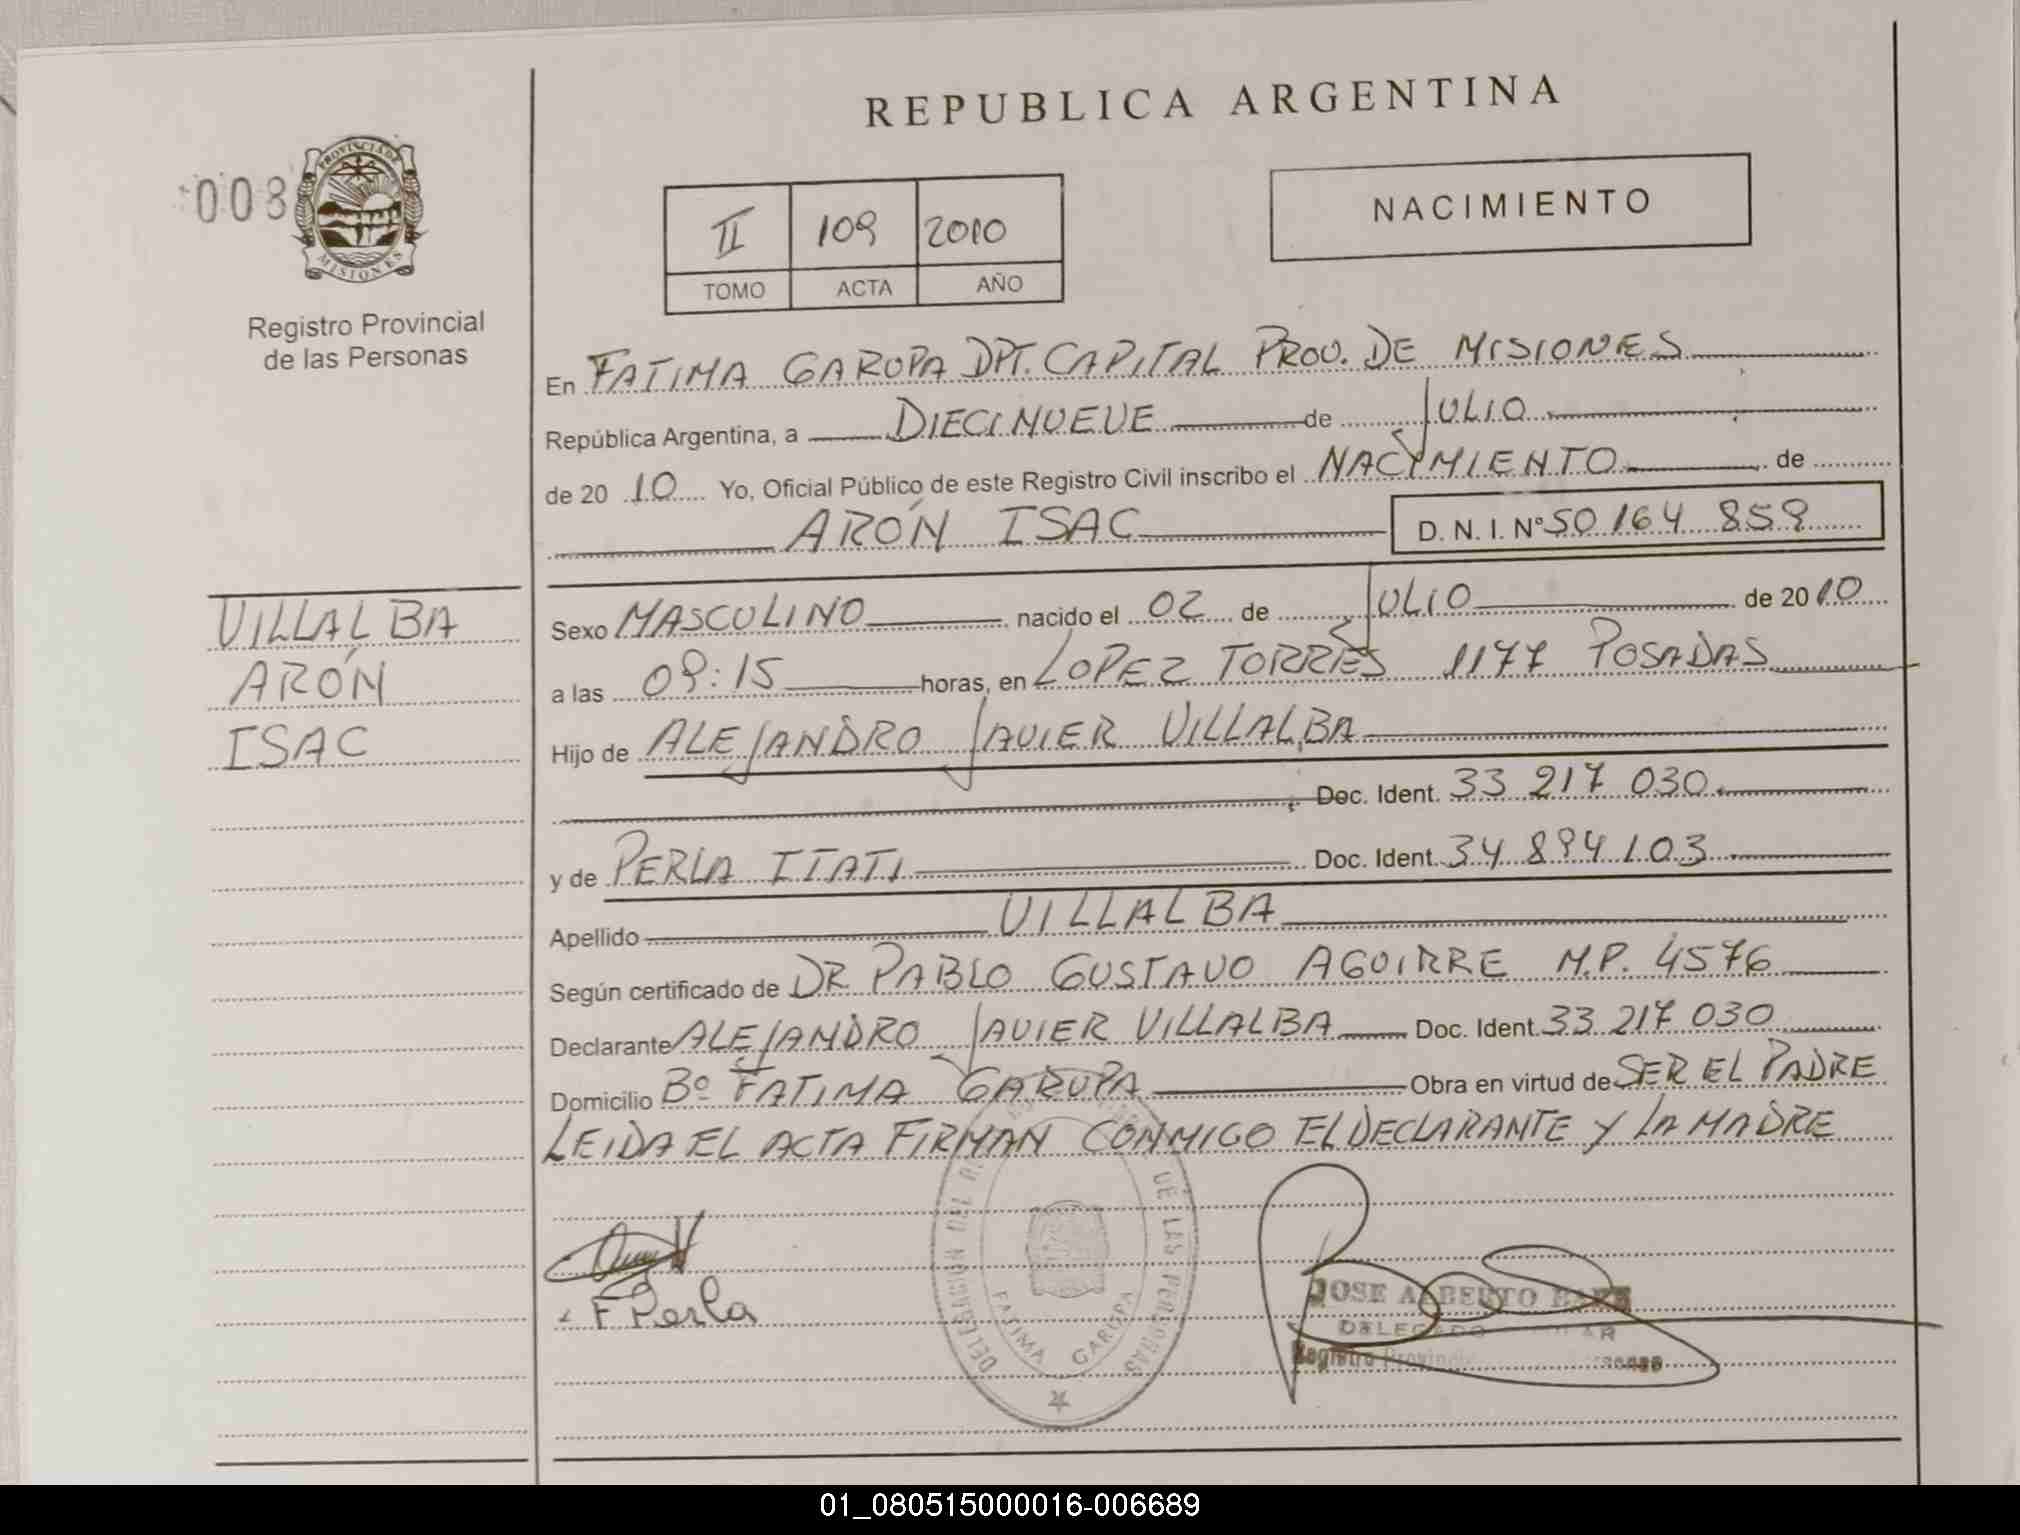 REPUBLICA ARGENTINA
008
PROVINCIA DE
MISIONES
Registro Provincial
de las Personas
II 109 2010
TOMO ACTA AÑO
NACIMIENTO
En FATIMA GARUPA DPT. CAPITAL PROV. DE MISIONES
República Argentina, a DIECINUEVE de JULIO
de 20 10 Yo, Oficial Público de este Registro Civil inscribo el NACIMIENTO de
ARÓN ISAC D. N. I. Nº 50 164 859
VILLALBA
ARÓN
ISAC
Sexo MASCULINO nacido el 02 de JULIO de 2010
a las 09:15 horas, en LOPEZ TORRES 1177 POSADAS
Hijo de ALEJANDRO JAVIER VILLALBA
Doc. Ident. 33 217 030
y de PERLA ITATI Doc. Ident. 34 894 103
Apellido VILLALBA
Según certificado de DR PABLO GUSTAVO AGUIRRE M.P. 4576
Declarante ALEJANDRO JAVIER VILLALBA Doc. Ident. 33 217 030
Domicilio Bº FATIMA GARUPA Obra en virtud de SER EL PADRE
LEIDA EL ACTA FIRMAN CONMIGO EL DECLARANTE Y LA MADRE
F Perla
DELEGACION DEL DE LAS PERSONAS
FATIMA GARUPA
JOSE ALBERTO
DELEGADO
Registro Provincial
01_080515000016-006689